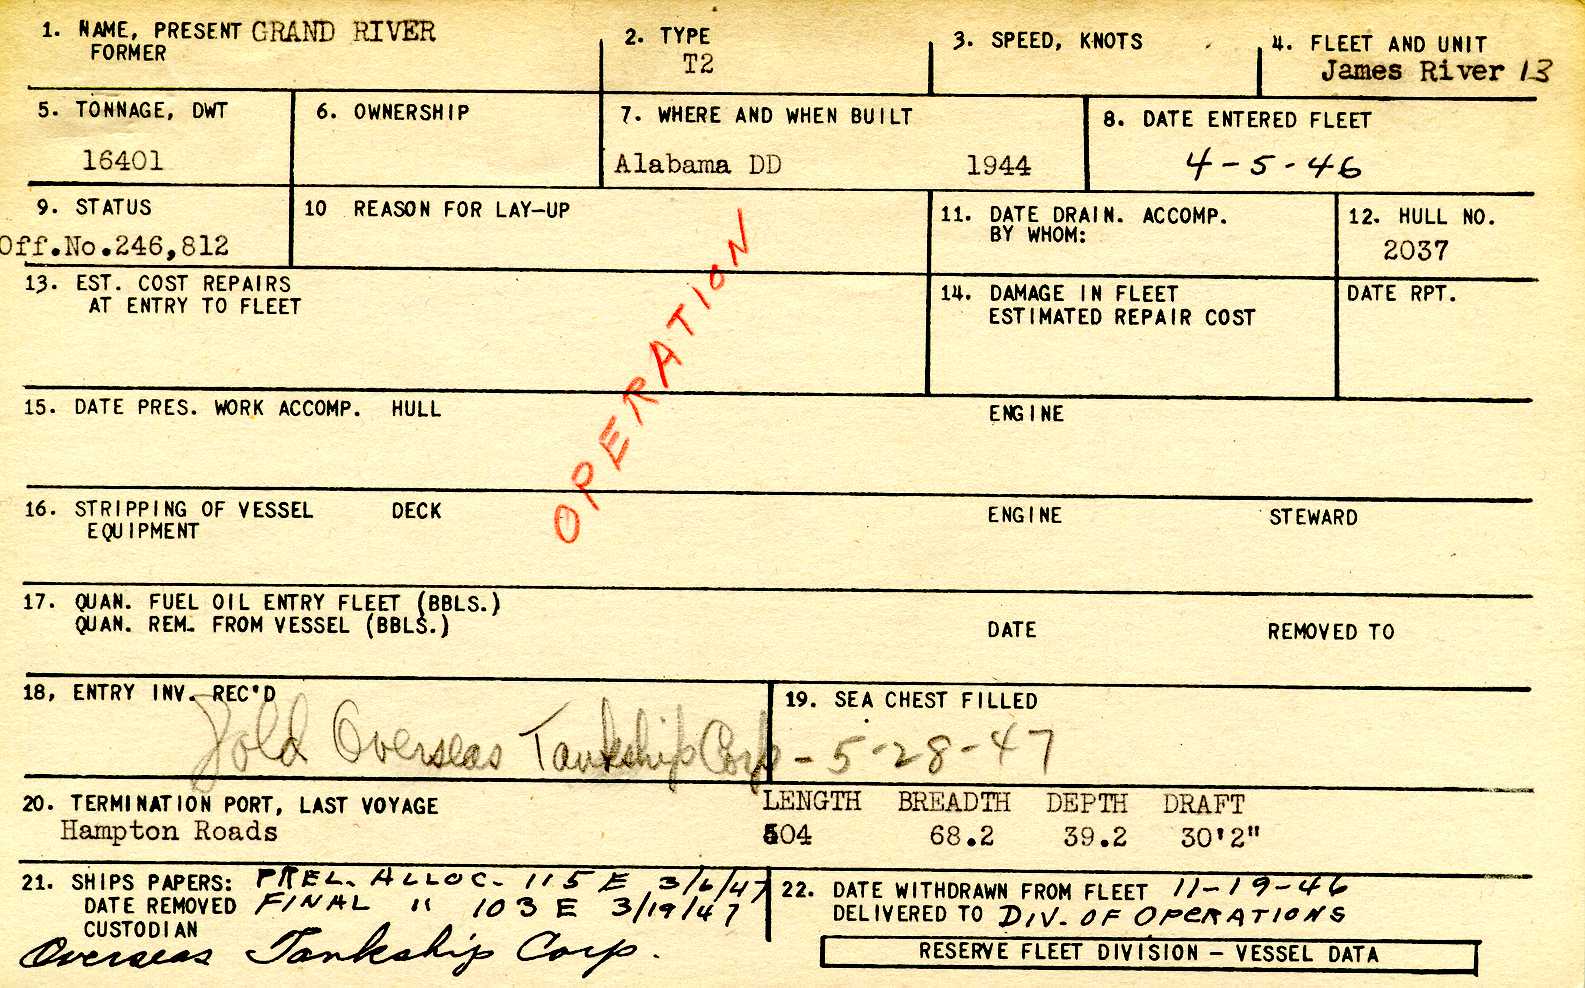 1. NAME, PRESENT GRAND RIVER
FORMER
2. TYPE
T2
3. SPEED, KNOTS
4. FLEET AND UNIT
James River 13
5. TONNAGE, DWT
16401
6. OWNERSHIP
7. WHERE AND WHEN BUILT
Alabama DD 1944
8. DATE ENTERED FLEET
4-5-46
9. STATUS
Off.No.246,812
10 REASON FOR LAY-UP
11. DATE DRAIN. ACCOMP.
BY WHOM:
12. HULL NO.
2037
13. EST. COST REPAIRS
AT ENTRY TO FLEET
OPERATION
14. DAMAGE IN FLEET
ESTIMATED REPAIR COST
DATE RPT.
15. DATE PRES. WORK ACCOMP. HULL ENGINE
16. STRIPPING OF VESSEL DECK ENGINE STEWARD
EQUIPMENT
17. QUAN. FUEL OIL ENTRY FLEET (BBLS.)
QUAN. REM. FROM VESSEL (BBLS.) DATE REMOVED TO
18, ENTRY INV. REC'D
19. SEA CHEST FILLED
Sold Overseas Tankship Corp - 5-28-47
20. TERMINATION PORT, LAST VOYAGE
Hampton Roads
LENGTH BREADTH DEPTH DRAFT
504 68.2 39.2 30'2"
21. SHIPS PAPERS: PREL. ALLOC. 115 E 3/6/47
DATE REMOVED FINAL " 103 E 3/19/47
CUSTODIAN
Overseas Tankship Corp.
22. DATE WITHDRAWN FROM FLEET 11-19-46
DELIVERED TO DIV. OF OPERATIONS
RESERVE FLEET DIVISION - VESSEL DATA